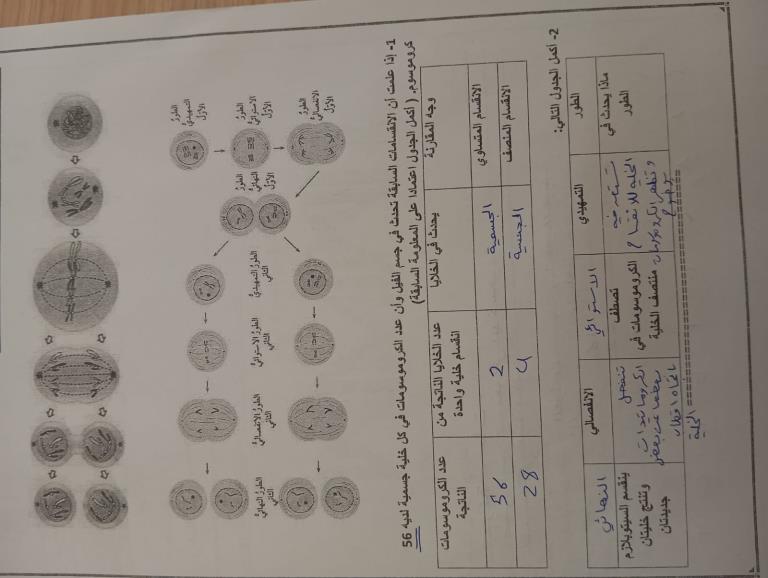 الطورُ التمهيديُّ الأوّلُ
الطورُ الاستوائيُّ الأوّلُ
الطورُ الانفصاليُّ الأوّلُ
الطورُ النهائيُّ الأوّلُ
الطورُ التمهيديُّ الثاني
الطورُ الاستوائيُّ الثاني
الطورُ الانفصاليُّ الثاني
الطورُ النهائيُّ الثاني
1- إذا علمت أن الانقسامات السابقة تحدث في جسم الفيل وأن عدد الكروموسومات في كل خلية جسمية لديه 56
كروموسوم. (أكمل الجدول اعتمادا على المعلومة السابقة)
وجه المقارنة
يحدث في الخلايا
عدد الخلايا الناتجة من انقسام خلية واحدة
عدد الكروموسومات الناتجة
الانقسام المتساوي
الجسمية
2
56
الانقسام المنصف
الجنسية
4
28
2- أكمل الجدول التالي:
الطور
التمهيدي
الاستوائي
الانفصالي
النهائي
ماذا يحدث في الطور
تستعد فيه
الخلية للانقسام
وتظهر الكروموسومات
تصطف
الكروموسومات في
منتصف الخلية
تنفصل
الكروماتيدات
بعضها عن بعض
باتجاه اقطاب
الخلية
ينقسم السيتوبلازم
وتنتج خليتان
جديدتان